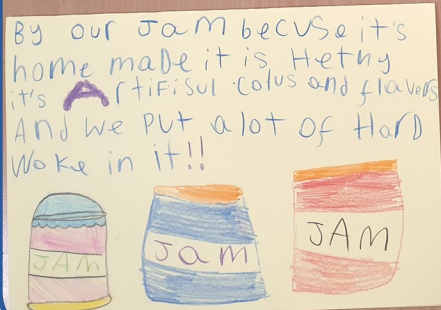 By our JAM becuse it's
home made it is Hethy
it's Artifisul colus and flavers
And we put a lot of Hard
Woke in it!!
JAM
Jam
JAM